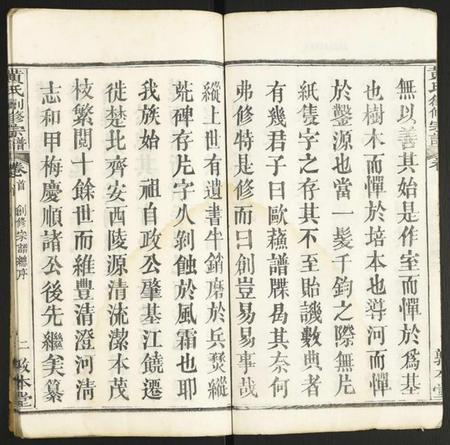 黄氏創修宗譜
無以善其始是作室而憚於為基
也樹木而憚於培本也導河而憚
於鑿源也當一髮千鈞之際無片
紙隻字之存其不至貽譏數典者
有幾君子曰歐蘇譜牒曷其奈何
弗修特是修而曰創豈易易事哉
敦本堂
縱上世有遺書半銷磨於兵燹縱
荒碑存片字久剝蝕於風霜也耶
我族始祖自政公肇基江饒遷
徙楚北齊安西陵源清流潔本茂
枝繁閱十餘世而維豐清澄河清
志和甲梅慶順諸公後先繼美纂
黄氏創修宗譜
卷首
創修宗譜總序
二
敦本堂